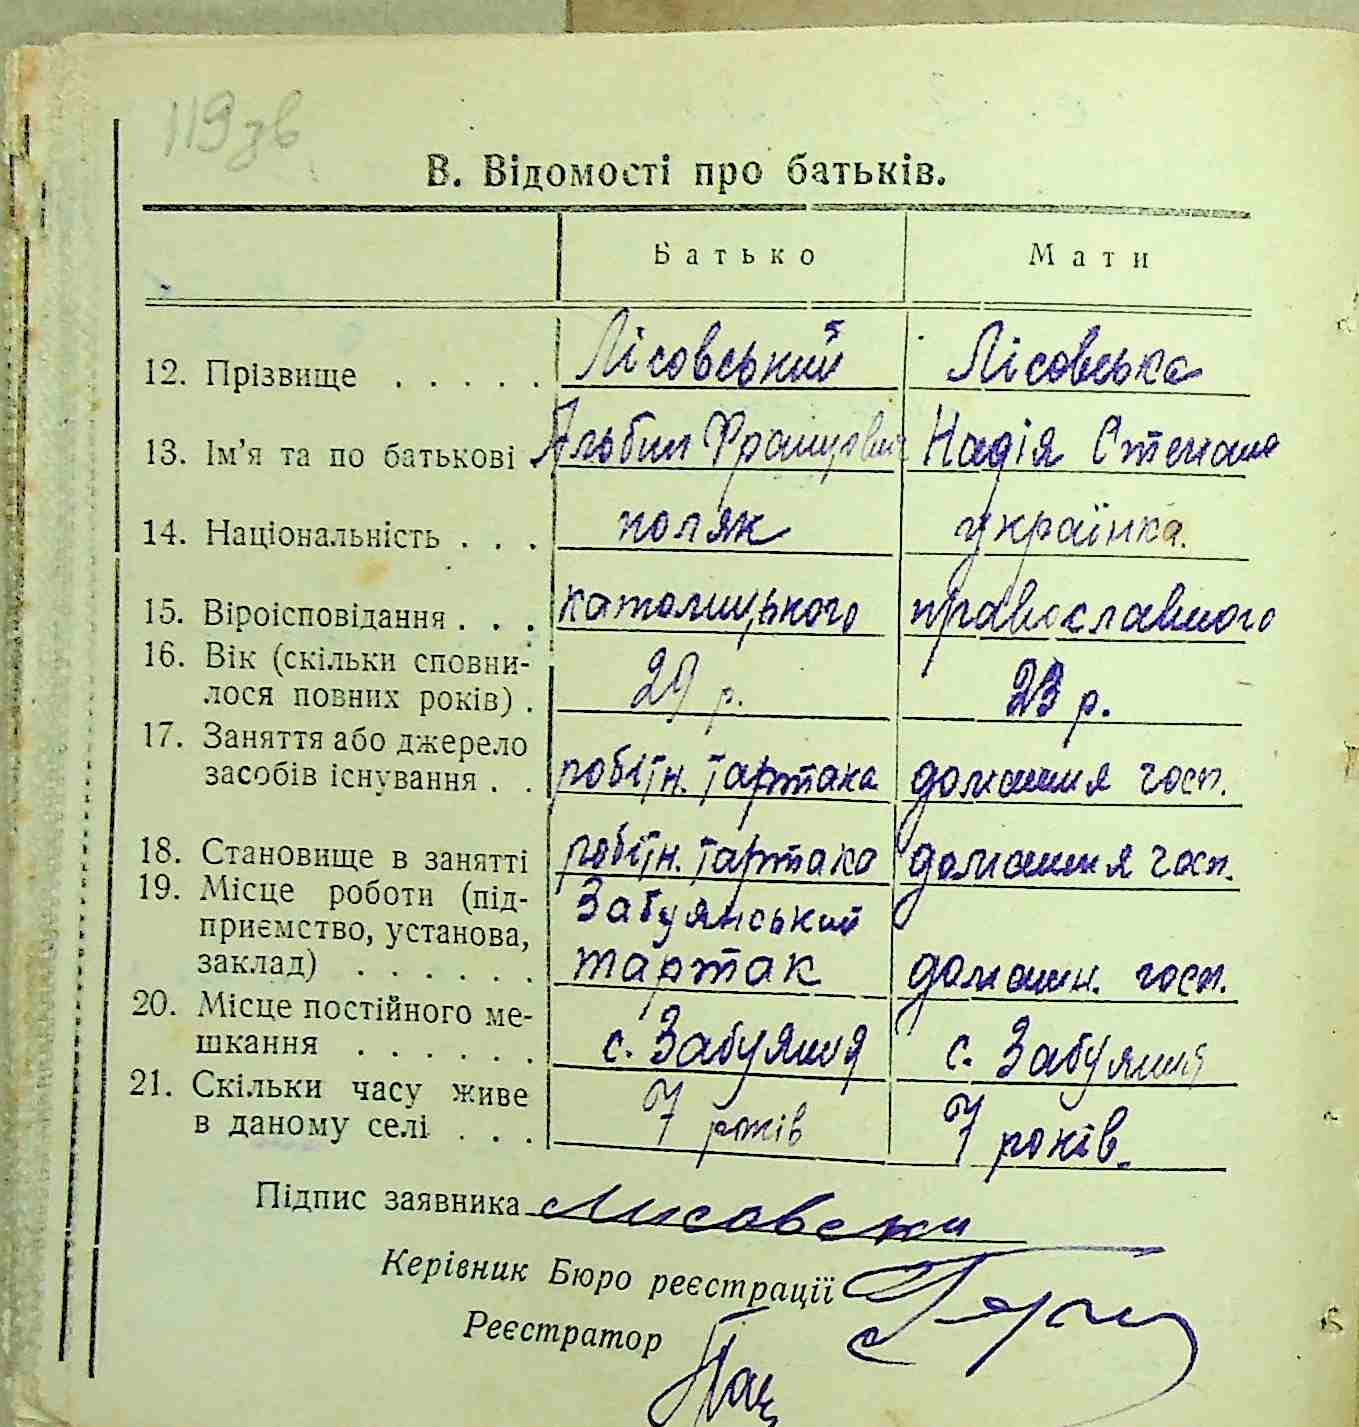 119 зв
В. Відомості про батьків.
Батько Мати
12. Прізвище . . . . . Лісовський Лісовська
13. Ім'я та по батькові Альбин Францович Надія Степано
14. Національність . . . поляк українка.
15. Віроісповідання . . . католицького православного
16. Вік (скільки сповни-
лося повних років) . 29 р. 23 р.
17. Заняття або джерело
засобів існування . . робітн. тартака домашня госп.
18. Становище в занятті робітн. тартака домашня госп.
19. Місце роботи (під- Забуянський
приємство, установа,
заклад) . . . . . . тартак домашн. госп.
20. Місце постійного ме-
шкання . . . . . . с. Забуяння с. Забуяння
21. Скільки часу живе
в даному селі . . . 7 років 7 років.
Підпис заявника Лисовски
Керівник Бюро реєстрації
Реєстратор